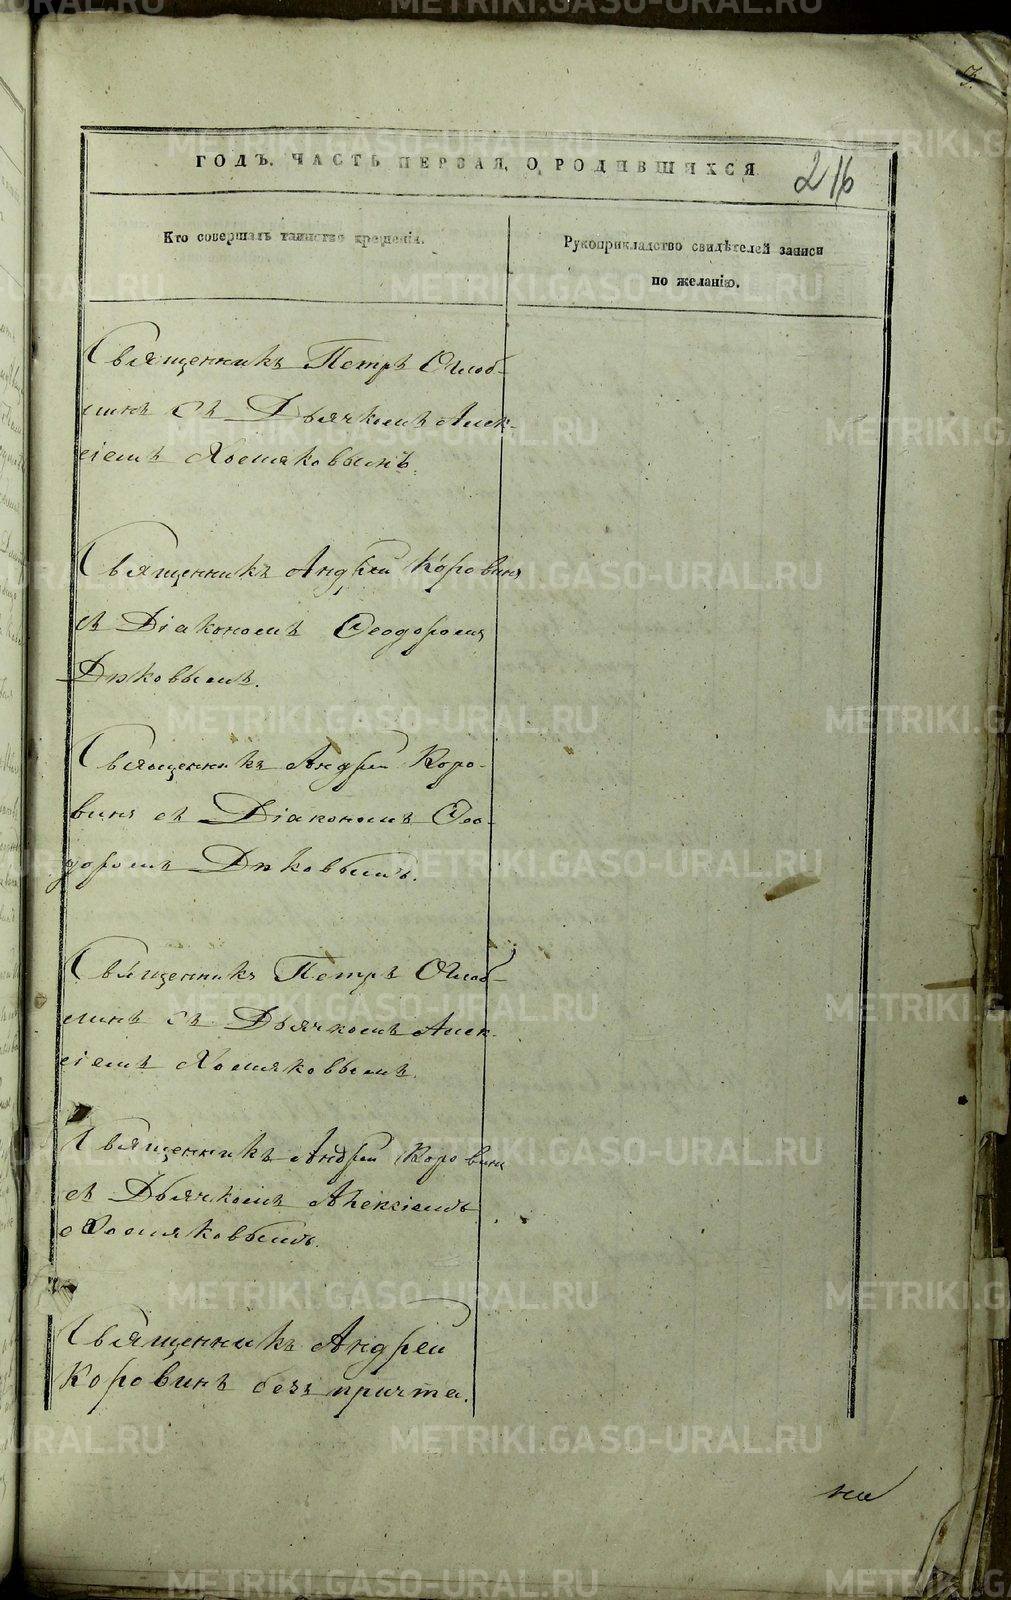 METRIKI.GASO-URAL.RU
3.
ГОДЪ. ЧАСТЬ ПЕРВАЯ, О РОДИВШИХСЯ
216
Кто совершалъ таинство крещенія.
Рукоприкладство свидѣтелей записи
по желанію.
Священникъ Петръ Оглоб-
линъ съ Дьячкомъ Алек-
сіемъ Хомяковымъ.
Священникъ Андрей Коровинъ
съ Діакономъ Ѳеодоромъ
Диковымъ.
Священникъ Андрей Коро-
винъ съ Діакономъ Ѳео-
доромъ Диковымъ.
Священникъ Петръ Оглоб-
линъ съ Дьячкомъ Алек-
сіемъ Хомяковымъ.
Священникъ Андрей Коровинъ
съ Дьячкомъ Алексіемъ
Хомяковымъ.
Священникъ Андрей
Коровинъ безъ причта.
на